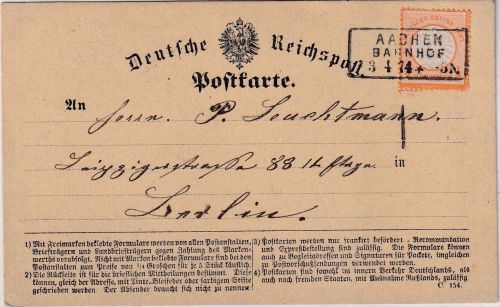 AACHEN
BAHNHOF
3 4 74 * -3N.
Deutsche Reichspost
Postkarte.
An Herrn P. Leuchtmann.
Leipzigerstrasse 88 II Etage.
in
Berlin.
1) Mit Freimarken beklebte Formulare werden von allen Postanstalten, Briefträgern und Landbriefträgern gegen Zahlung des Markenwerths verabfolgt. Nicht mit Marken beklebte Formulare sind bei den Postanstalten zum Preise von ¼ Groschen für je 5 Stück käuflich.
2) Die Rückseite ist für die brieflichen Mittheilungen bestimmt. Diese können, gleich der Adresse, mit Tinte, Bleifeder oder farbigem Stifte geschrieben werden. Der Absender braucht sich nicht zu nennen.
3) Postkarten werden nur frankirt befördert. Recommandation und Expreßbestellung sind zulässig. Die Formulare können auch zu Begleitadressen und Signaturen für Packete, ingleichen zu Postvorschußsendungen verwendet werden.
4) Postkarten sind sowohl im innern Verkehr Deutschlands, als auch nach fremden Staaten, mit Ausnahme Rußlands, zulässig.
C. 154.